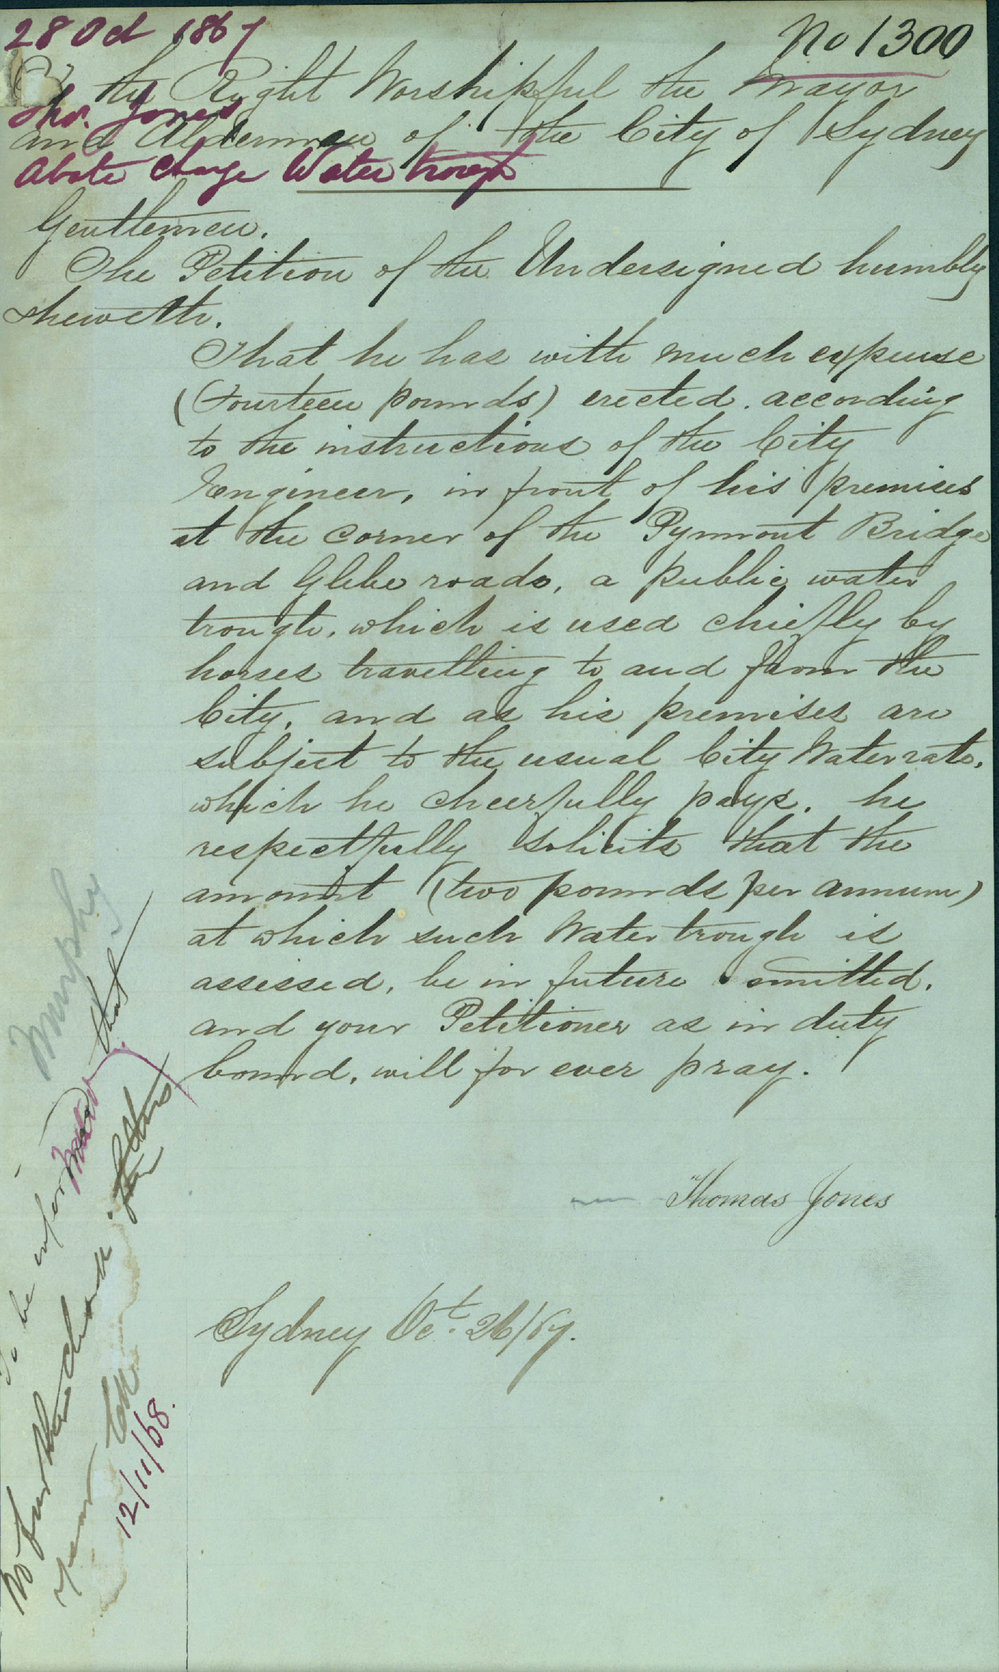 28 Oct 1867
No 1300
To the Right Worshipful the Mayor
Thos. Jones
and Aldermen of the City of Sydney
Abate charge Water trough
Gentlemen.
The Petition of the Undersigned humbly
sheweth.
That he has with much expense
(Fourteen pounds) erected. according
to the instructions of the City
Engineer, in front of his premises
at the corner of the Pyrmont Bridge
and Glebe roads, a public water
trough, which is used chiefly by
horses travelling to and from the
City, and as his premises are
subject to the usual City Water rate,
which he cheerfully pays. he
respectfully solicits that the
amount (two pounds per annum)
at which such Water trough is
assessed, be in future omitted.
and your Petitioner as in duty
bound, will for ever pray.
Thomas Jones
Sydney Oct. 26/67.
Murphy
To be informed that
No further charge
12/11/68.